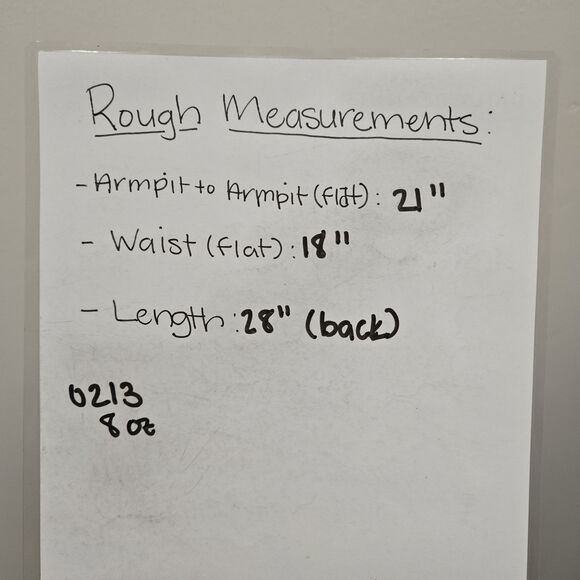 Rough Measurements:
- Armpit to Armpit (flat): 21"
- Waist (flat): 18"
- Length: 28" (back)
0213
8 oz